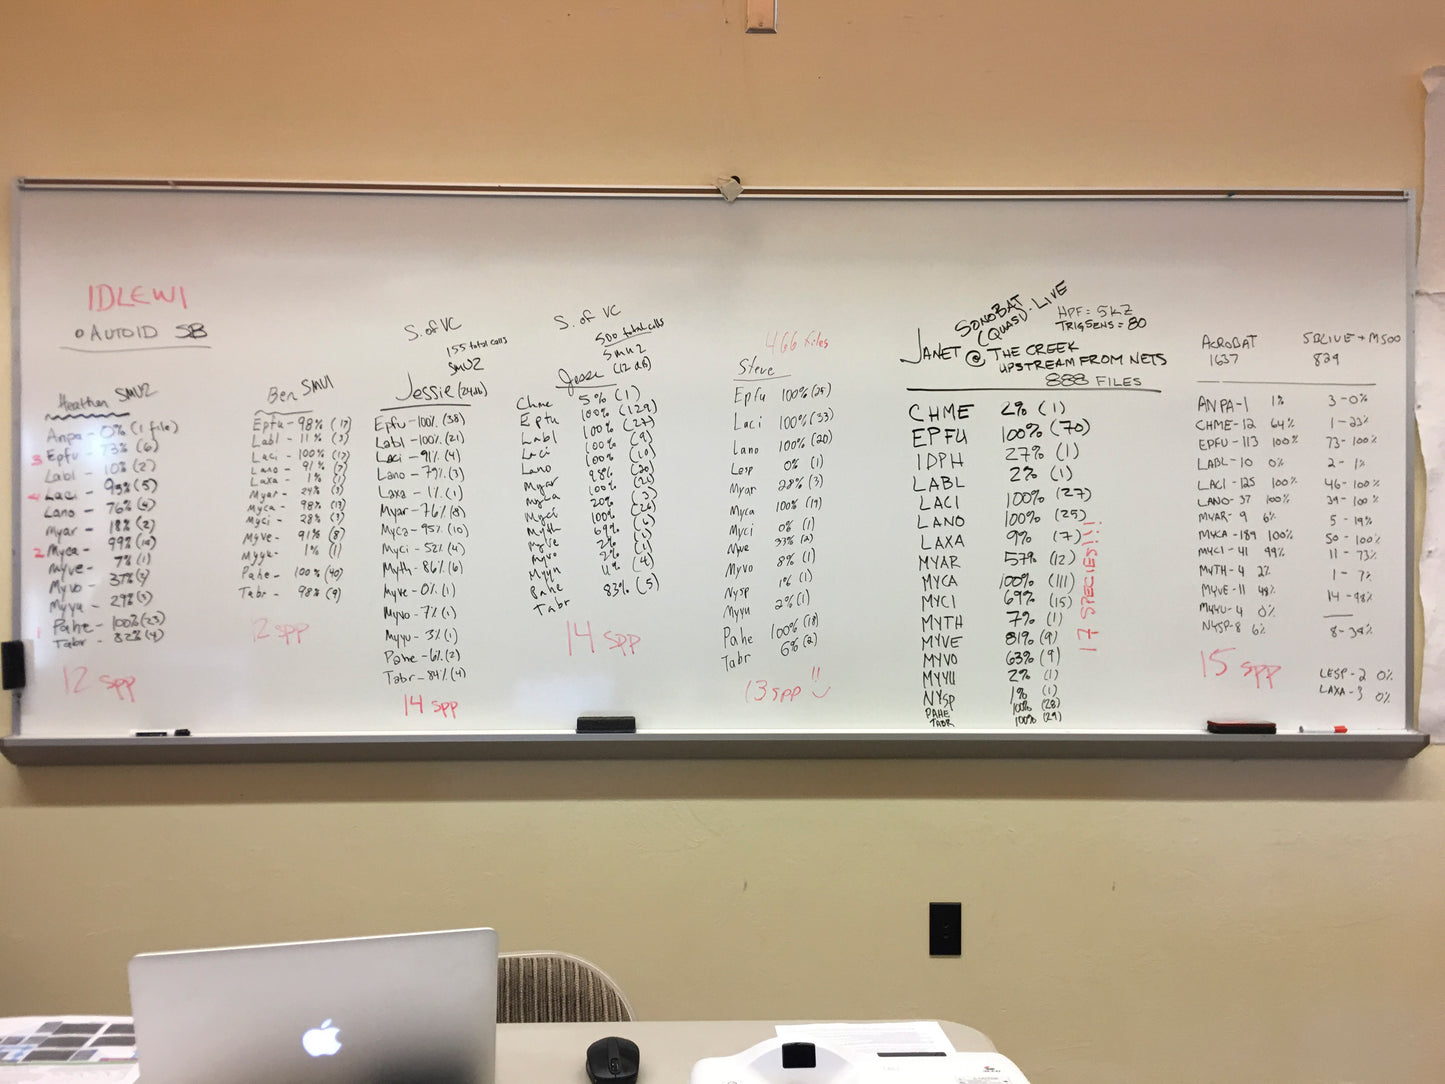 IDLEWI
o AUTOID SB
Heather SMU2
Anpa - 0% (1 file)
3 Epfu - 73% (6)
Labl - 10% (2)
4 Laci - 95% (5)
Lano - 76% (4)
Myar - 18% (2)
2 Myca - 99% (10)
Myve - 7% (1)
Myvo - 37% (2)
Myyu - 29% (3)
1 Pahe - 100% (23)
Tabr - 82% (4)
12 spp
Ben SMU1
Epfu - 98% (17)
Labl - 11% (3)
Laci - 100% (12)
Lano - 91% (7)
Laxa - 1% (1)
Myar - 24% (3)
Myca - 98% (13)
Myci - 28% (3)
Myve - 91% (8)
Myyu - 1% (1)
Pahe - 100% (40)
Tabr - 98% (9)
12 spp
S. of VC
155 total calls
SMU2
Jessie (24db)
Epfu - 100% (38)
Labl - 100% (21)
Laci - 91% (4)
Lano - 79% (3)
Laxa - 1% (1)
Myar - 76% (8)
Myca - 95% (10)
Myci - 52% (4)
Myth - 86% (6)
Myve - 0% (1)
Myvo - 7% (1)
Myyu - 3% (1)
Pahe - 6% (2)
Tabr - 84% (4)
14 spp
S. of VC
500 total calls
SMU2
Jesse (12 db)
Chme 5% (1)
Epfu 100% (129)
Labl 100% (27)
Laci 100% (9)
Lano 100% (10)
Myar 98% (20)
Myca 100% (20)
Myci 20% (3)
Myth 100% (26)
Myve 69% (6)
Myvo 2% (1)
Myyu 2% (1)
Pahe 4% (4)
Tabr 83% (5)
14 spp
466 files
Steve
Epfu 100% (29)
Laci 100% (33)
Lano 100% (20)
Lesp 0% (1)
Myar 28% (3)
Myca 100% (19)
Myci 0% (1)
Myve 33% (2)
Myvo 8% (1)
Nysp 1% (1)
Myyu 2% (1)
Pahe 100% (18)
Tabr 6% (2)
13 spp !!
SONOBAT
(QUASI) LIVE
HPF = 5kZ
TRIGSENS = 80
JANET @ THE CREEK
UPSTREAM FROM NETS
888 FILES
CHME 2% (1)
EPFU 100% (70)
IDPH 27% (1)
LABL 2% (1)
LACI 100% (27)
LANO 100% (25)
LAXA 9% (7)
MYAR 57% (12)
MYCA 100% (111)
MYCI 69% (15)
MYTH 7% (1)
MYVE 81% (9)
MYVO 63% (9)
MYYU 2% (1)
NYSP 1% (1)
PAHE 100% (28)
TABR 100% (29)
17 SPECIES!!!
ACROBAT
1637
ANPA - 1 1%
CHME - 12 64%
EPFU - 113 100%
LABL - 10 0%
LACI - 125 100%
LANO - 37 100%
MYAR - 9 6%
MYCA - 189 100%
MYCI - 41 99%
MYTH - 4 2%
MYVE - 11 48%
MYYU - 4 0%
NYSP - 8 6%
15 spp
SBLIVE + M500
829
3 - 0%
1 - 23%
73 - 100%
2 - 1%
46 - 100%
39 - 100%
5 - 19%
50 - 100%
11 - 73%
1 - 7%
14 - 98%
8 - 38%
LESP - 2 0%
LAXA - 3 0%